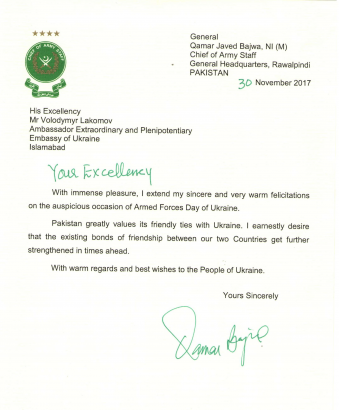 CHIEF OF ARMY STAFF
General
Qamar Javed Bajwa, NI (M)
Chief of Army Staff
General Headquarters, Rawalpindi
PAKISTAN
30 November 2017
His Excellency
Mr Volodymyr Lakomov
Ambassador Extraordinary and Plenipotentiary
Embassy of Ukraine
Islamabad
Your Excellency
With immense pleasure, I extend my sincere and very warm felicitations
on the auspicious occasion of Armed Forces Day of Ukraine.
Pakistan greatly values its friendly ties with Ukraine. I earnestly desire
that the existing bonds of friendship between our two Countries get further
strengthened in times ahead.
With warm regards and best wishes to the People of Ukraine.
Yours Sincerely
Qamar Bajwa